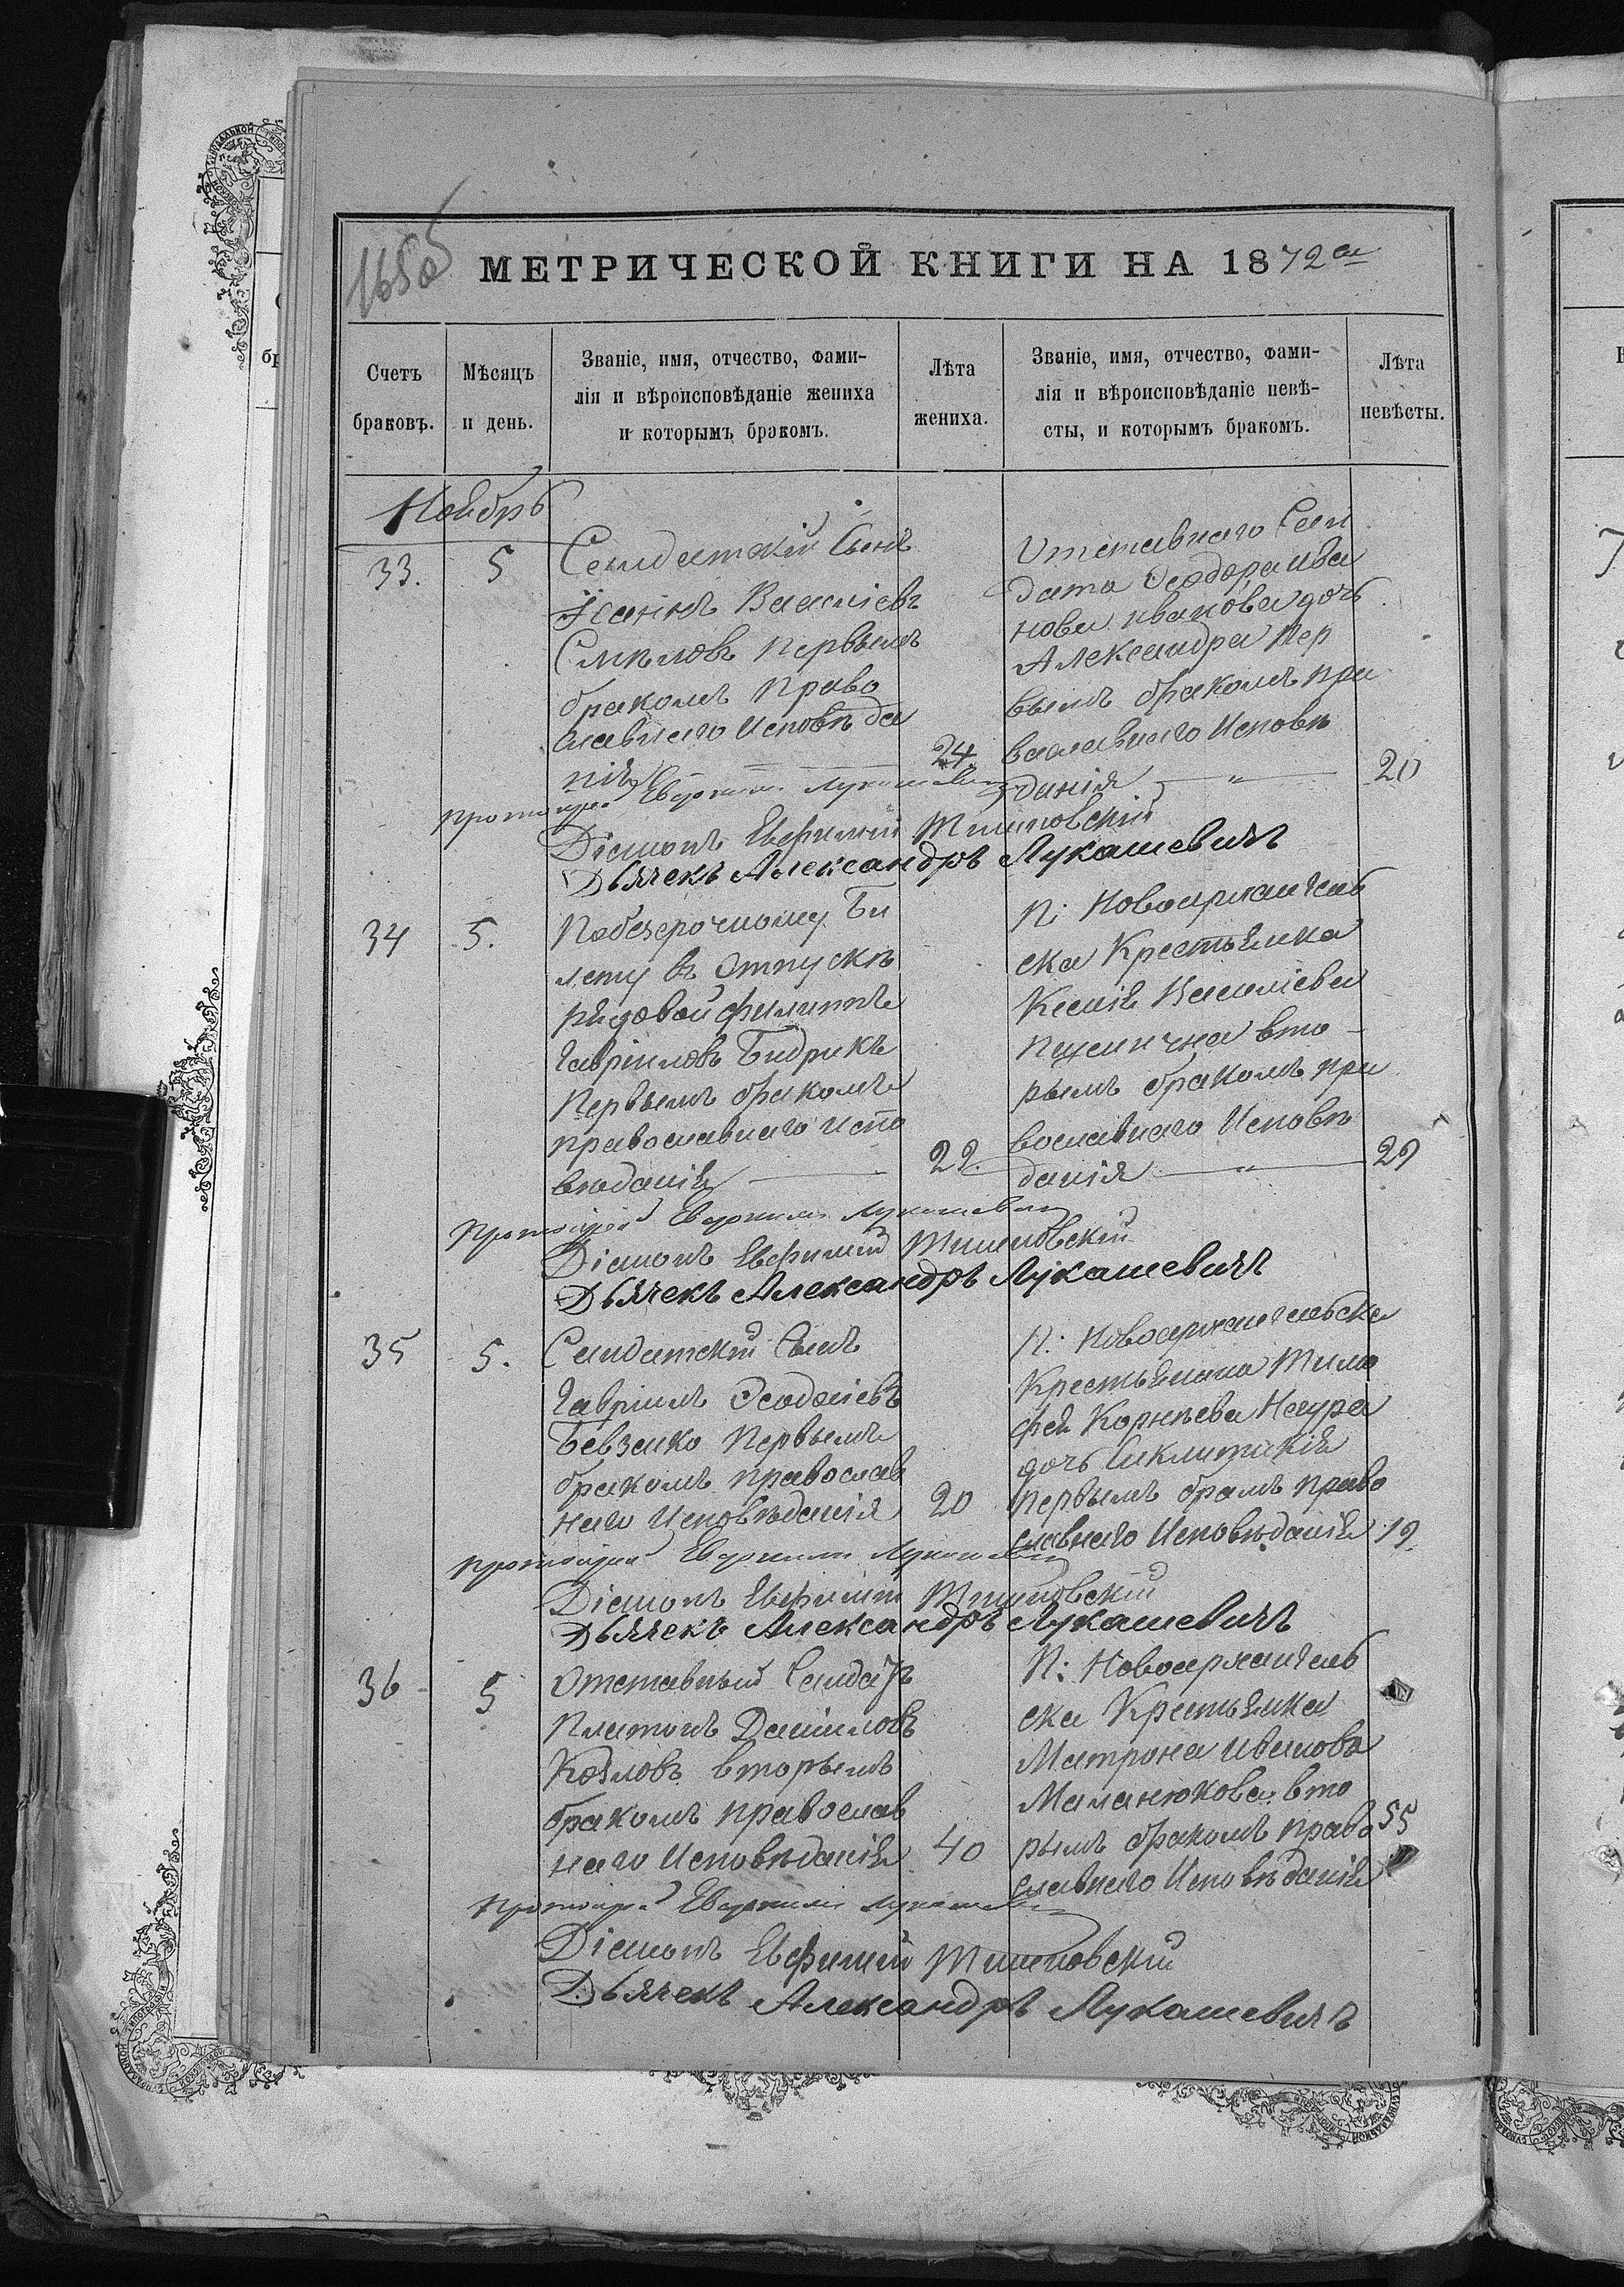 МЕТРИЧЕСКОЙ КНИГИ НА 1872 ой
Счетъ браковъ.
Мѣсяцъ и день.
Званіе, имя, отчество, фами-
лія и вѣроисповѣданіе жениха
и которымъ бракомъ.
Лѣта жениха.
Званіе, имя, отчество, фами-
лія и вѣроисповѣданіе невѣ-
сты, и которымъ бракомъ.
Лѣта невѣсты.
Ноябрь
33.
5
Солдатскій Сынъ
Василіевъ
первымъ
бракомъ право
славнаго Исповѣда
нія
24.
Отставнаго Сол
дата Ѳеодора Ива
нова Иванова дочь
Александра пер
вымъ бракомъ пра
вославнаго Исповѣ
данія "
20
Протоіерей Лукашевич
Діаконъ Евфимій
Дьячекъ Александръ Лукашевичъ
34
5.
По безсрочному Би
лету въ Отпускѣ
рядовой Филиппъ
Гавріиловъ Бидрикъ
Первымъ бракомъ
православнаго испо
вѣданія
29.
П: Новоархангель
ска Крестьянка
Ксенія Василіева
вто
рымъ бракомъ пра
вославнаго Исповѣ
данія "
29
Протоіерей Лукашевич
Діаконъ Евфимій
Дьячекъ Александръ Лукашевичъ
35
5.
Солдатскій Сынъ
Гавріилъ Ѳеодосіевъ
Бевзенко Первымъ
бракомъ православ
наго Исповѣданія
20
П: Новоархангельска
Крестьянина Тимо
фея Корнѣева Негура
дочь Сиклитикія
первымъ бракмъ право
славнаго Исповѣданія
19.
Протоіерей Лукашевич
Діаконъ Евфимій
Дьячекъ Александръ Лукашевичъ
36
5
Отставный Солдатъ
Платонъ Даніиловъ
Козловъ вторымъ
бракомъ православ
наго Исповѣданія
40
П: Новоархангель
ска Крестьянка
Матрона Иванова
Маманюкова вто
рымъ бракомъ право
славнаго Исповѣданія
55
Протоіерей Лукашевич
Діаконъ Евфимій
Дьячекъ Александръ Лукашевичъ